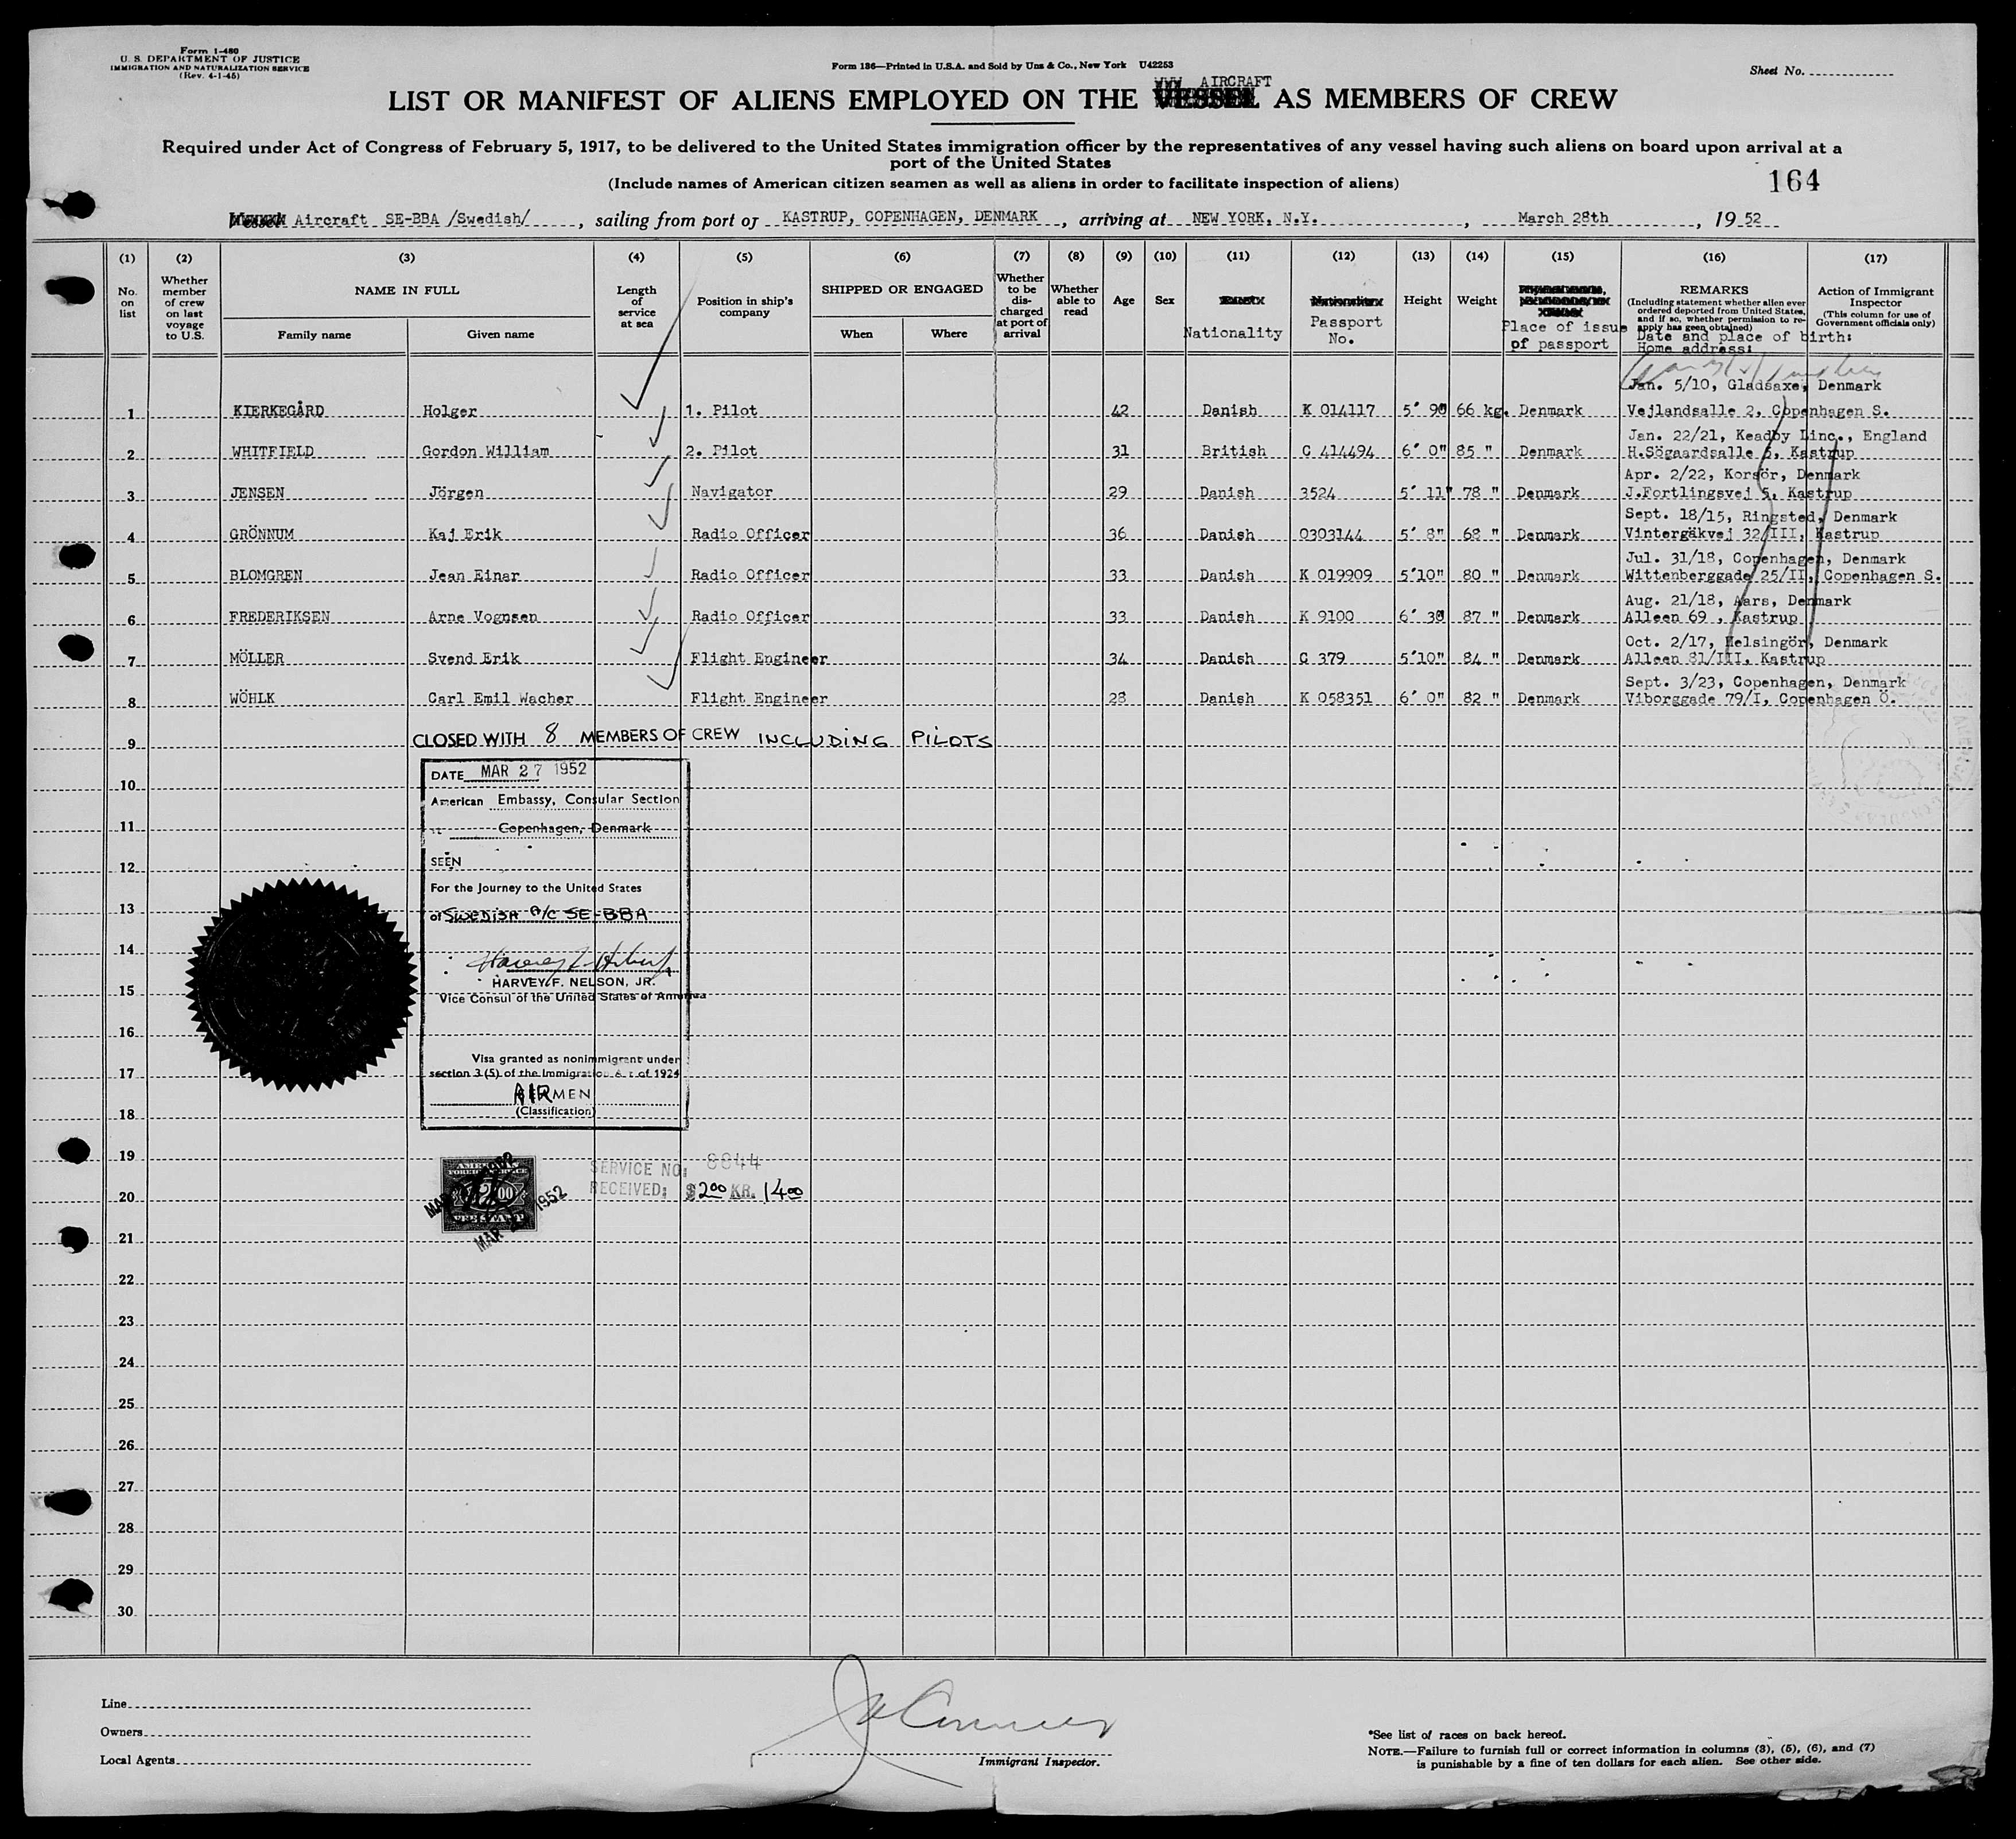 Form I-480
U. S. DEPARTMENT OF JUSTICE
IMMIGRATION AND NATURALIZATION SERVICE
(Rev. 4-1-45)
Form 136—Printed in U.S.A. and Sold by Unz & Co., New York U42253
Sheet No.
AIRCRAFT
LIST OR MANIFEST OF ALIENS EMPLOYED ON THE VESSEL AS MEMBERS OF CREW
Required under Act of Congress of February 5, 1917, to be delivered to the United States immigration officer by the representatives of any vessel having such aliens on board upon arrival at a
port of the United States
(Include names of American citizen seamen as well as aliens in order to facilitate inspection of aliens)
164
Vessel Aircraft SE-BBA /Swedish/ , sailing from port of KASTRUP, COPENHAGEN, DENMARK , arriving at NEW YORK, N.Y. , March 28th , 19 52
(1) (2) (3) (4) (5) (6) (7) (8) (9) (10) (11) (12) (13) (14) (15) (16) (17)
No. on list
Whether member of crew on last voyage to U.S.
NAME IN FULL
Family name Given name
Length of service at sea
Position in ship's company
SHIPPED OR ENGAGED
When Where
Whether to be discharged at port of arrival
Whether able to read
Age
Sex
Nationality
Passport No.
Height
Weight
Place of issue of passport
REMARKS
(Including statement whether alien ever ordered deported from United States, and if so, whether permission to reapply has been obtained)
Date and place of birth:
Home address:
Action of Immigrant Inspector
(This column for use of Government officials only)
Jan. 5/10, Gladsaxe, Denmark
1 KIERKEGÅRD Holger 1. Pilot 42 Danish K 014117 5' 9" 66 kg. Denmark Vejlandsalle 2, Copenhagen S.
Jan. 22/21, Keadby Linc., England
2 WHITFIELD Gordon William 2. Pilot 31 British C 414494 6' 0" 85 " Denmark H.Sögaardsalle 5, Kastrup
Apr. 2/22, Korsör, Denmark
3 JENSEN Jörgen Navigator 29 Danish 3524 5' 11" 78 " Denmark J.Fortlingsvej 5, Kastrup
Sept. 18/15, Ringsted, Denmark
4 GRÖNNUM Kaj Erik Radio Officer 36 Danish 0303144 5' 8" 68 " Denmark Vintergäkvej 32/III, Kastrup
Jul. 31/18, Copenhagen, Denmark
5 BLOMGREN Jean Einar Radio Officer 33 Danish K 019909 5'10" 80 " Denmark Wittenberggade 25/II, Copenhagen S.
Aug. 21/18, Aars, Denmark
6 FREDERIKSEN Arne Vognsen Radio Officer 33 Danish K 9100 6' 3" 87 " Denmark Alleen 69 , Kastrup
Oct. 2/17, Helsingör, Denmark
7 MÖLLER Svend Erik Flight Engineer 34 Danish C 379 5'10" 84 " Denmark Alleen 81/III, Kastrup
Sept. 3/23, Copenhagen, Denmark
8 WÖHLK Carl Emil Wacher Flight Engineer 28 Danish K 058351 6' 0" 82 " Denmark Viborggade 79/I, Copenhagen Ö.
9 CLOSED WITH 8 MEMBERS OF CREW INCLUDING PILOTS
DATE MAR 27 1952
10
American Embassy, Consular Section
11
Copenhagen, Denmark
12
SEEN
For the Journey to the United States
13
of SWEDISH A/C SE-BBA
14
HARVEY F. NELSON, JR.
15
Vice Consul of the United States of America
16
Visa granted as nonimmigrant under
17
section 3 (5) of the Immigration Act of 1924
AIRMEN
18
(Classification)
19
AMERICAN FOREIGN SERVICE
SERVICE NO: 8844
20
RECEIVED: $ 2.00 KR. 14.00
MAR 1952
21
22
23
24
25
26
27
28
29
30
Line
Owners
Local Agents
Immigrant Inspector.
*See list of races on back hereof.
NOTE.—Failure to furnish full or correct information in columns (3), (5), (6), and (7)
is punishable by a fine of ten dollars for each alien. See other side.